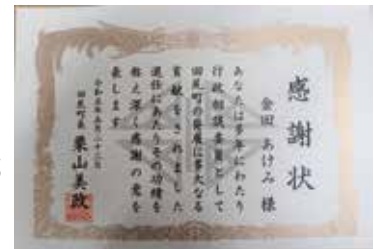 感謝状
金田 あけみ 様
あなたは多年にわたり
行政相談委員として
田尻町の発展に多大なる
貢献をされました
退任にあたりその功績を
称え深く感謝の意を
表します
令和五年五月二十三日
田尻町長 栗山美政